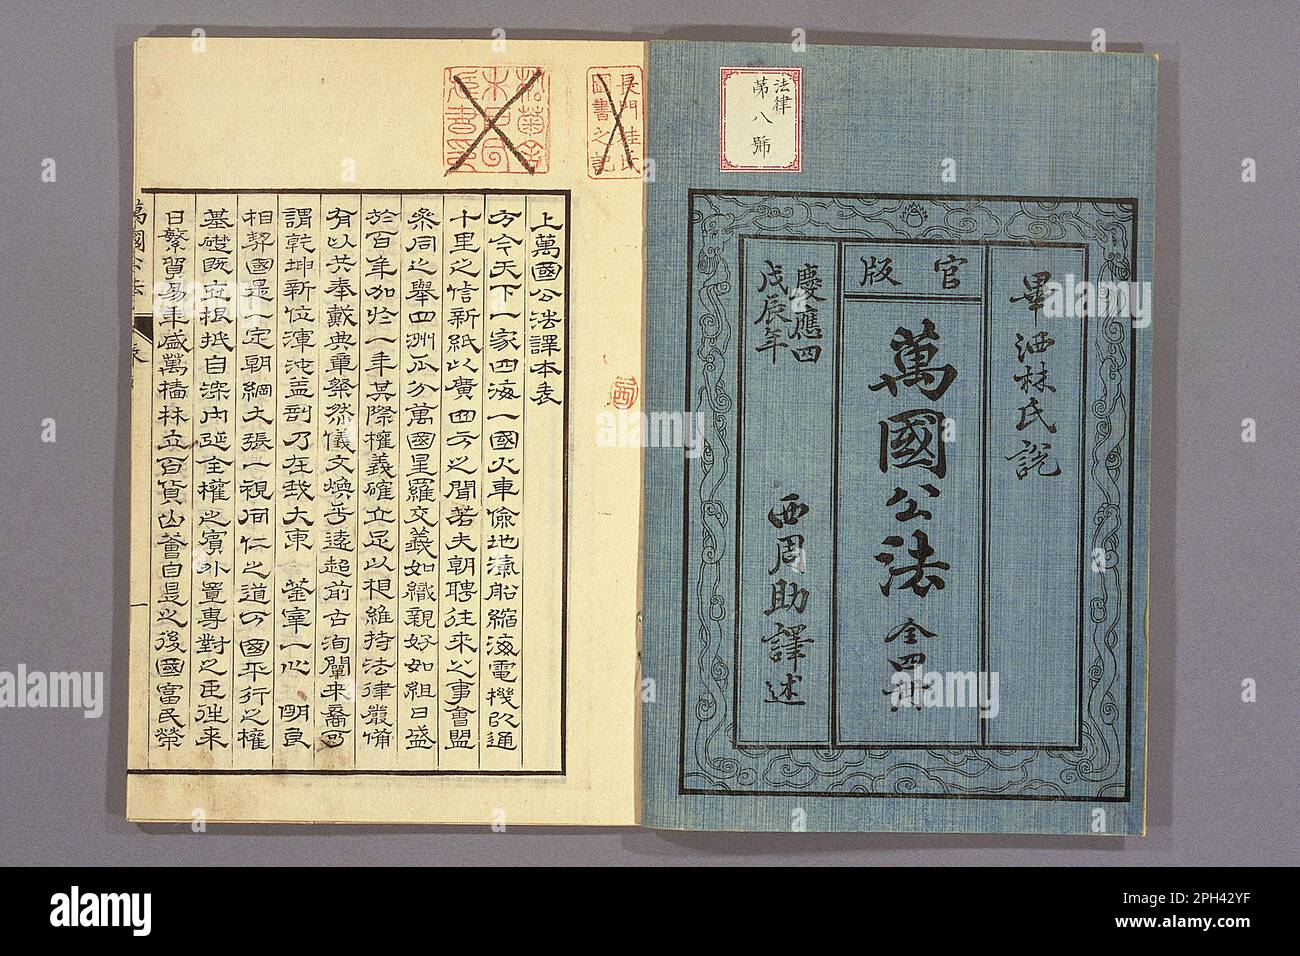 法律
第八號
官版
畢洒林氏説
萬國公法 全四冊
慶應四
戊辰年
西周助譯述
上萬國公法譯本表
方今天下一家四海一國火車儉地滊船縮海電機以通
十里之信新紙以廣四方之聞若夫朝聘往來之事會盟
衆同之舉四洲瓜分萬國星羅交義如織親好如組日盛
於百年加於一年其際權義確立足以相維持法律嚴備
有以共奉戴典章粲然儀文煥乎遠超前古洵闡來裔可
謂乾坤新位渾沌盖剖乃在我大東 釜宰一心 明良
相契國是一定朝綱大張一視同仁之道方 國平行之權
基礎既立根抵自深内延全權之賓外置專對之臣徃來
日繁貿易年盛萬檣林立百貨山薈自是之後國富民榮
萬國公法
表
一
長門桂氏
圖書之記
alamy
alamy
Image ID: 2PH42YF
www.alamy.com